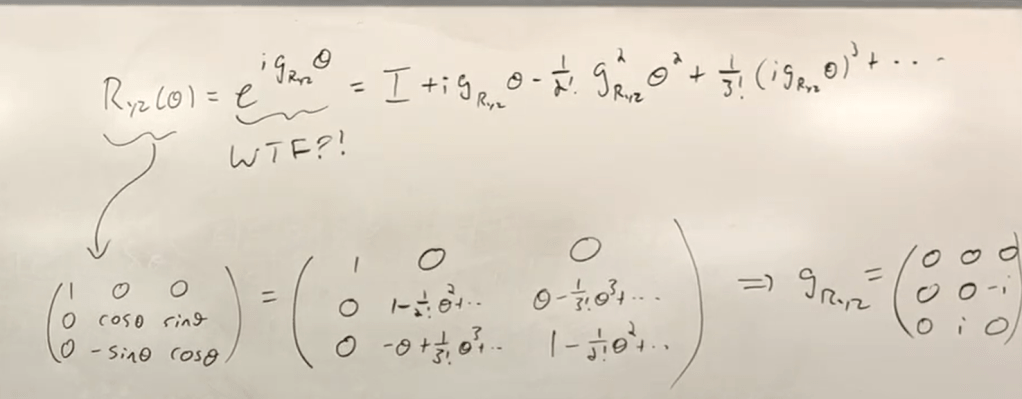 R_{yz}(θ) = e^{i g_{R_{yz}} θ} = I + i g_{R_{yz}} θ - \frac{1}{2!} g_{R_{yz}}^2 θ^2 + \frac{1}{3!} (i g_{R_{yz}} θ)^3 + ...
WTF?!
\begin{pmatrix} 1 & 0 & 0 \\ 0 & cosθ & sinθ \\ 0 & -sinθ & cosθ \end{pmatrix} = \begin{pmatrix} 1 & 0 & 0 \\ 0 & 1-\frac{1}{2!}θ^2+.. & θ-\frac{1}{3!}θ^3+... \\ 0 & -θ+\frac{1}{3!}θ^3+.. & 1-\frac{1}{2!}θ^2+.. \end{pmatrix} ⇒ g_{R_{yz}} = \begin{pmatrix} 0 & 0 & 0 \\ 0 & 0 & -i \\ 0 & i & 0 \end{pmatrix}